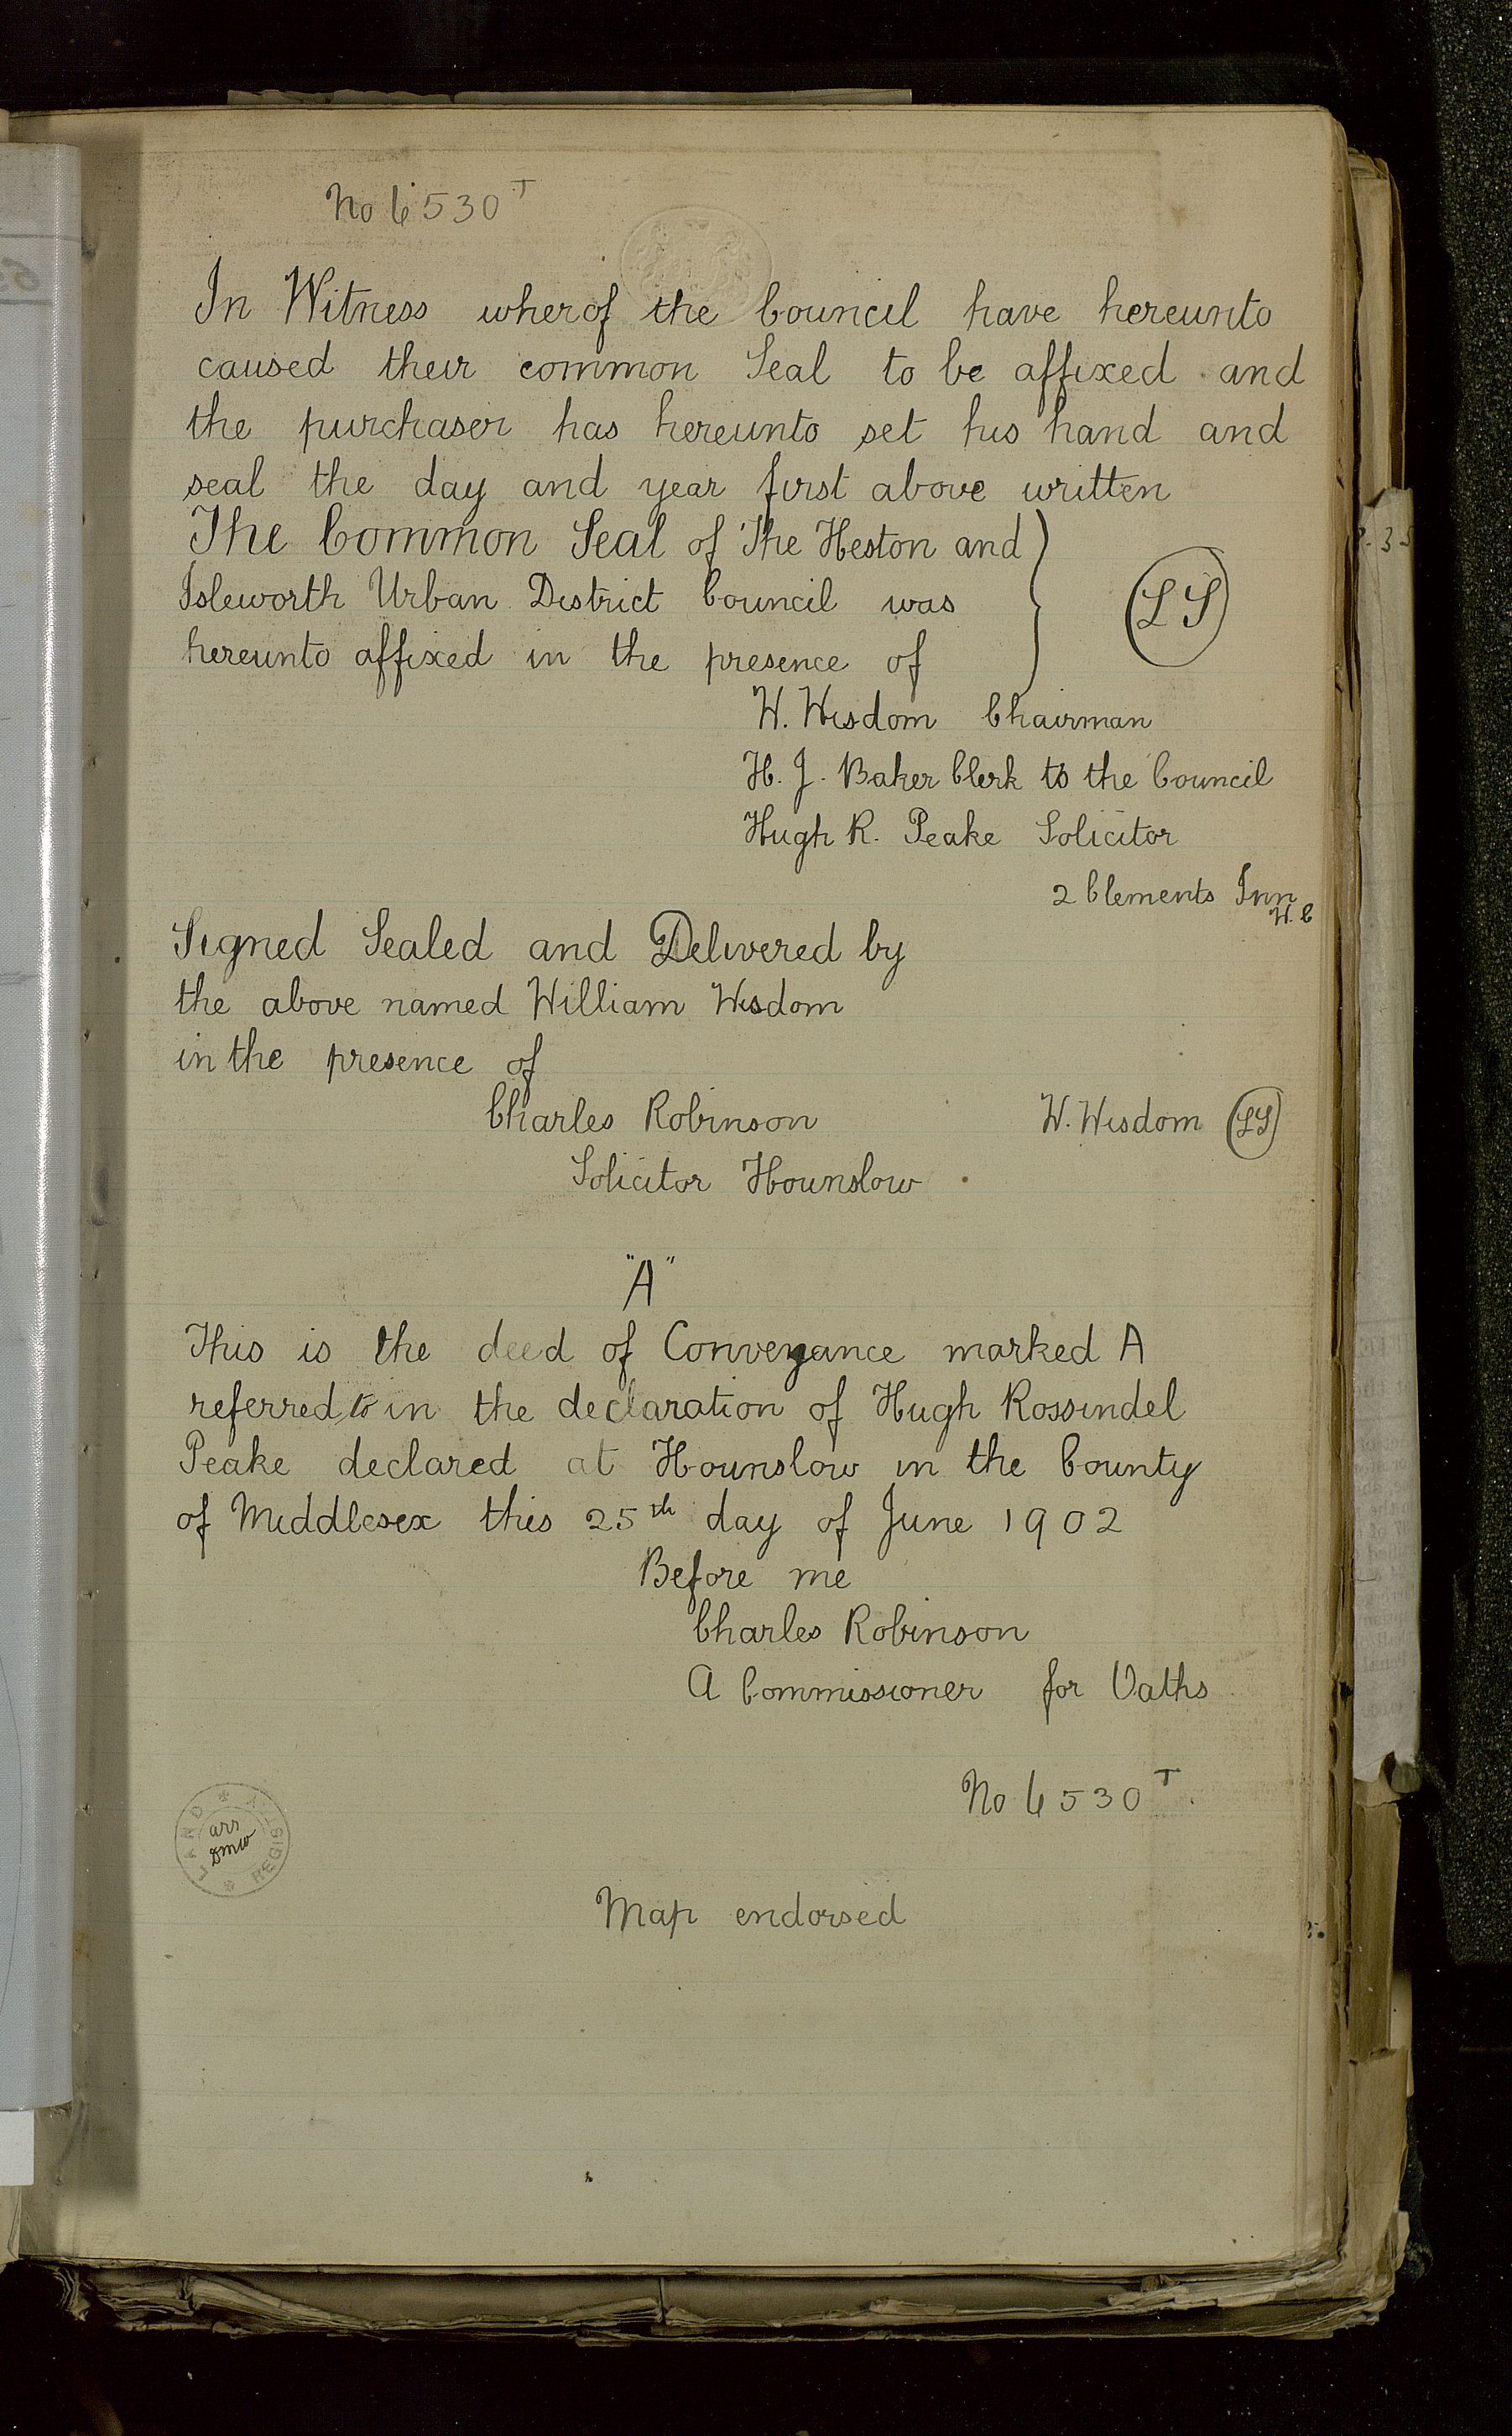 No 6530 T
In Witness wherof the Council have hereunto
caused their common Seal to be affixed and
the purchaser has hereunto set his hand and
seal the day and year first above written
The Common Seal of The Heston and
Isleworth Urban District Council was
hereunto affixed in the presence of
LS
W. Wisdom Chairman
H. J. Baker Clerk to the Council
Hugh R. Peake Solicitor
2 Clements Inn
W. C
Signed Sealed and Delivered by
the above named William Wisdom
in the presence of
Charles Robinson W. Wisdom LS
Solicitor Hounslow
"A"
This is the deed of Conveyance marked A
referred to in the declaration of Hugh Rossindel
Peake declared at Hounslow in the County
of Middlesex this 25th day of June 1902
Before me
Charles Robinson
A Commissioner for Oaths
No 6530 T
LAND REGIS
ars
Dmw
Map endorsed